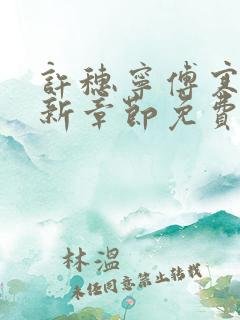 許穗寧傅寒
新章節免費
林溫
未經同意禁止轉載